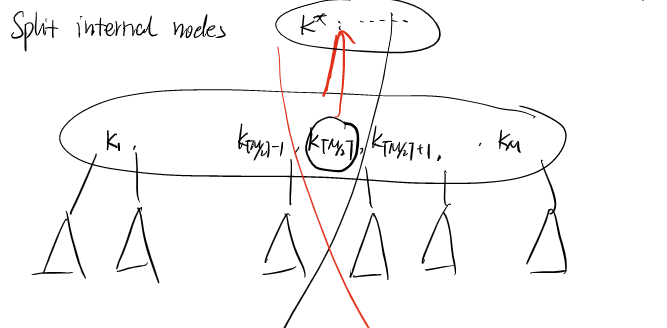 Split internal nodes
K* . -----
K₁ , K⌈M/2⌉-1 , K⌈M/2⌉ , K⌈M/2⌉+1 , . KM